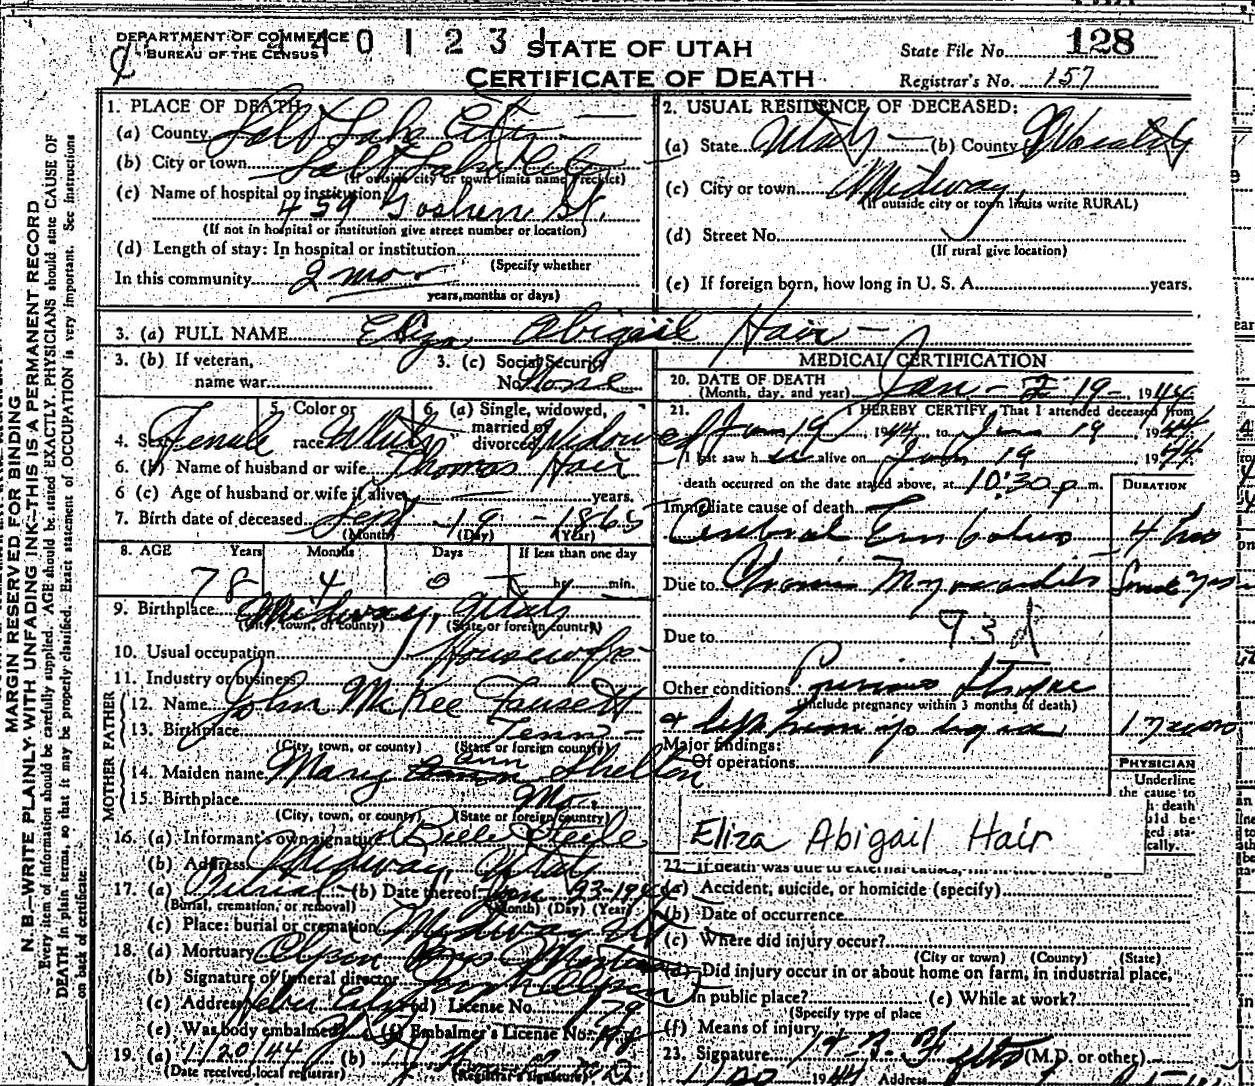 DEPARTMENT OF COMMERCE
BUREAU OF THE CENSUS
4 4 0 1 2 3 1
STATE OF UTAH
CERTIFICATE OF DEATH
State File No. 128
Registrar's No. 157
MARGIN RESERVED FOR BINDING
N. B.—WRITE PLAINLY WITH UNFADING INK—THIS IS A PERMANENT RECORD
Every item of information should be carefully supplied. AGE should be stated EXACTLY. PHYSICIANS should state CAUSE OF
DEATH in plain terms, so that it may be properly classified. Exact statement of OCCUPATION is very important. See instructions
on back of certificate.
1. PLACE OF DEATH
(a) County Salt Lake City
(b) City or town Salt Lake City
(If outside city or town limits name precinct)
(c) Name of hospital or institution:
459 Goshen St.
(If not in hospital or institution give street number or location)
(d) Length of stay: In hospital or institution
(Specify whether
In this community 2 mo
years, months or days)
2. USUAL RESIDENCE OF DECEASED:
(a) State Utah (b) County
(c) City or town Midway
(If outside city or town limits write RURAL)
(d) Street No.
(If rural give location)
(e) If foreign born, how long in U. S. A. years.
3. (a) FULL NAME Eliza Abigail Hair
3. (b) If veteran,
name war
3. (c) Social Security
No. None
4. Sex Female
5. Color or
race White
6. (a) Single, widowed,
married or
divorced Widowed
6. (b) Name of husband or wife Thomas Hair
6 (c) Age of husband or wife if alive years.
7. Birth date of deceased Sept 19 - 1865
(Month) (Day) (Year)
8. AGE Years Months Days If less than one day
78 4 0 hr. min.
9. Birthplace Midway, Utah
(City, town, or county) (State or foreign country)
10. Usual occupation Housewife
11. Industry or business
FATHER
12. Name John McKee Fausett
13. Birthplace Tenn
(City, town, or county) (State or foreign country)
MOTHER
14. Maiden name Mary Ann Shelton
15. Birthplace Mo.
(City, town, or county) (State or foreign country)
16. (a) Informant's own signature Steele
(b) Address Midway, Utah
17. (a) Burial (b) Date thereof Jan. 23-194
(Burial, cremation, or removal) (Month) (Day) (Year)
(c) Place: burial or cremation Midway Ut
18. (a) Mortuary Olpin Bros
(b) Signature of funeral director
(c) Address Heber City (d) License No. 79
(e) Was body embalmed (f) Embalmer's License No. 198
19. (a) 1/20/44 (b)
(Date received local registrar) (Registrar's signature)
MEDICAL CERTIFICATION
20. DATE OF DEATH
(Month, day, and year) Jan - 19 -, 1944
21. I HEREBY CERTIFY, That I attended deceased from
Jan 19, 1944, to Jan 19, 1944
I last saw her alive on Jan 19 1944
death occurred on the date stated above, at 10:30 p. m.
DURATION
Immediate cause of death
Cerebral Embolus 4 hrs
Due to Chronic Myocarditis Several yrs
93d
Due to
Other conditions Previous Stroke
(Include pregnancy within 3 months of death)
& left hemiplegia
Major findings:
Of operations
PHYSICIAN
Underline
the cause to
Eliza Abigail Hair
22. If death was due to external causes,
(a) Accident, suicide, or homicide (specify)
(b) Date of occurrence
(c) Where did injury occur?
(City or town) (County) (State)
(d) Did injury occur in or about home on farm, in industrial place,
in public place? (e) While at work?
(Specify type of place
(f) Means of injury
23. Signature (M.D. or other)
1944 Address